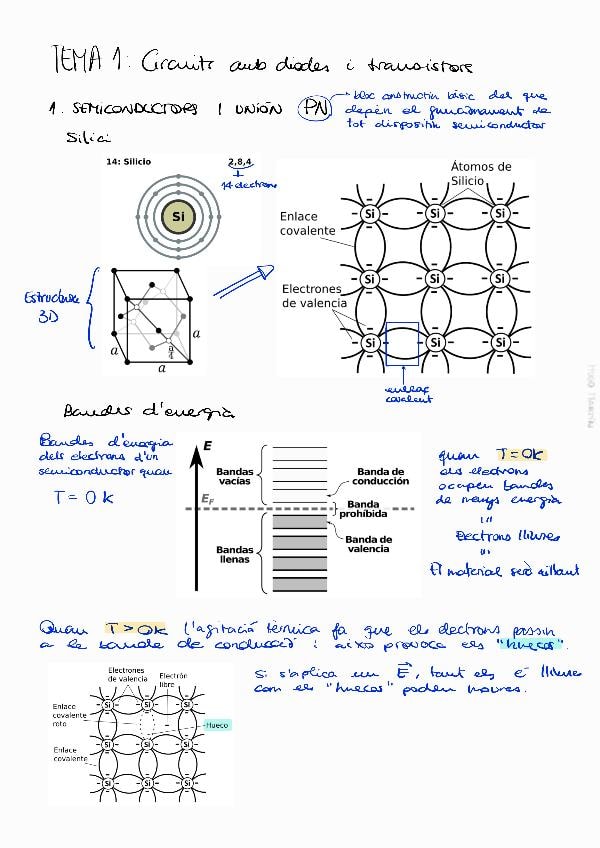 TEMA 1: Circuits amb díodes i transistors
1. SEMICONDUCTORS I UNIÓN PN
bloc constructiu bàsic del que
depèn el funcionament de
tot dispositiu semiconductor
Silici
14: Silicio 2,8,4
14 electrons
Si
Estructura
3D
a
a
a
Átomos de
Silicio
Enlace
covalente
Electrones
de valencia
Si Si Si
Si Si Si
Si Si Si
enllaç
covalent
Bandes d'energia
Bandes d'energia
dels electrons d'un
semiconductor quan
T = 0 K
E
E_F
Bandas
vacías
Bandas
llenas
Banda de
conducción
Banda
prohibida
Banda de
valencia
quan T=0K
els electrons
ocupen bandes
de menys energia
Electrons lliures
El material serà aïllant
Quan T>0K l'agitació tèrmica fa que els electrons passin
a la banda de conducció i això provoca els "huecos".
Si s'aplica un E, tant els e⁻ lliures
com els "huecos" poden moure.
Electrones
de valencia
Electrón
libre
Enlace
covalente
roto
Hueco
Enlace
covalente
Si Si Si
Si Si Si
Si Si Si